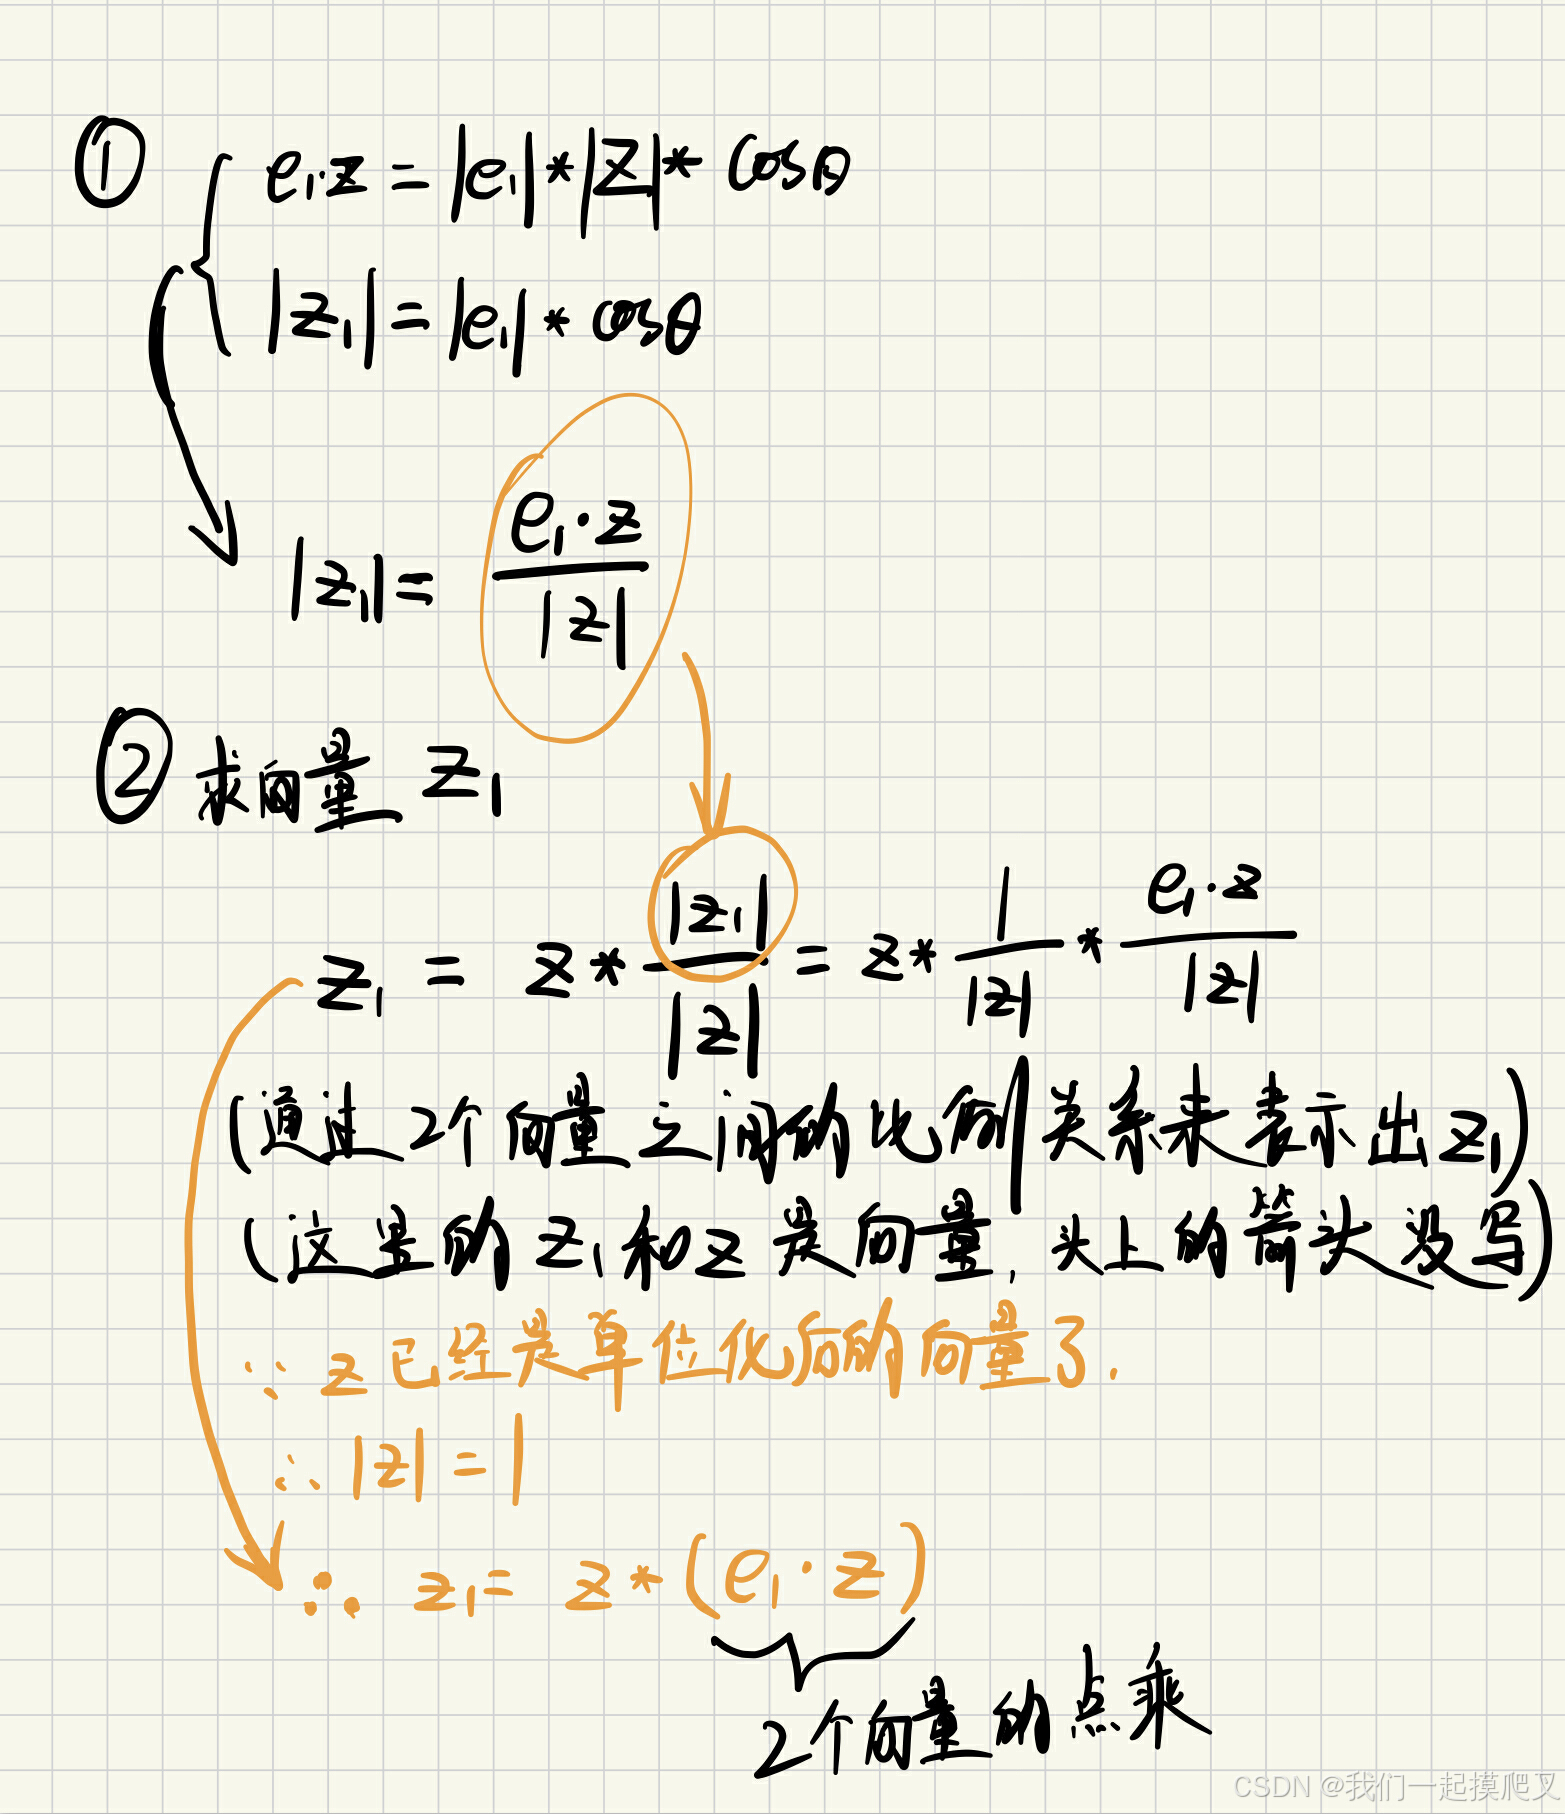 ① e₁·z = |e₁| * |z| * cosθ
|z₁| = |e₁| * cosθ
|z₁| = e₁·z / |z|
② 求向量 z₁
z₁ = z * |z₁| / |z| = z * 1 / |z| * e₁·z / |z|
(通过2个向量之间的比例关系来表示出z₁)
(这里的z₁和z是向量,头上的箭头没写)
∵ z已经是单位化后的向量了.
∴ |z| = 1
∴ z₁ = z * (e₁·z)
2个向量的点乘
CSDN @我们一起摸爬叉